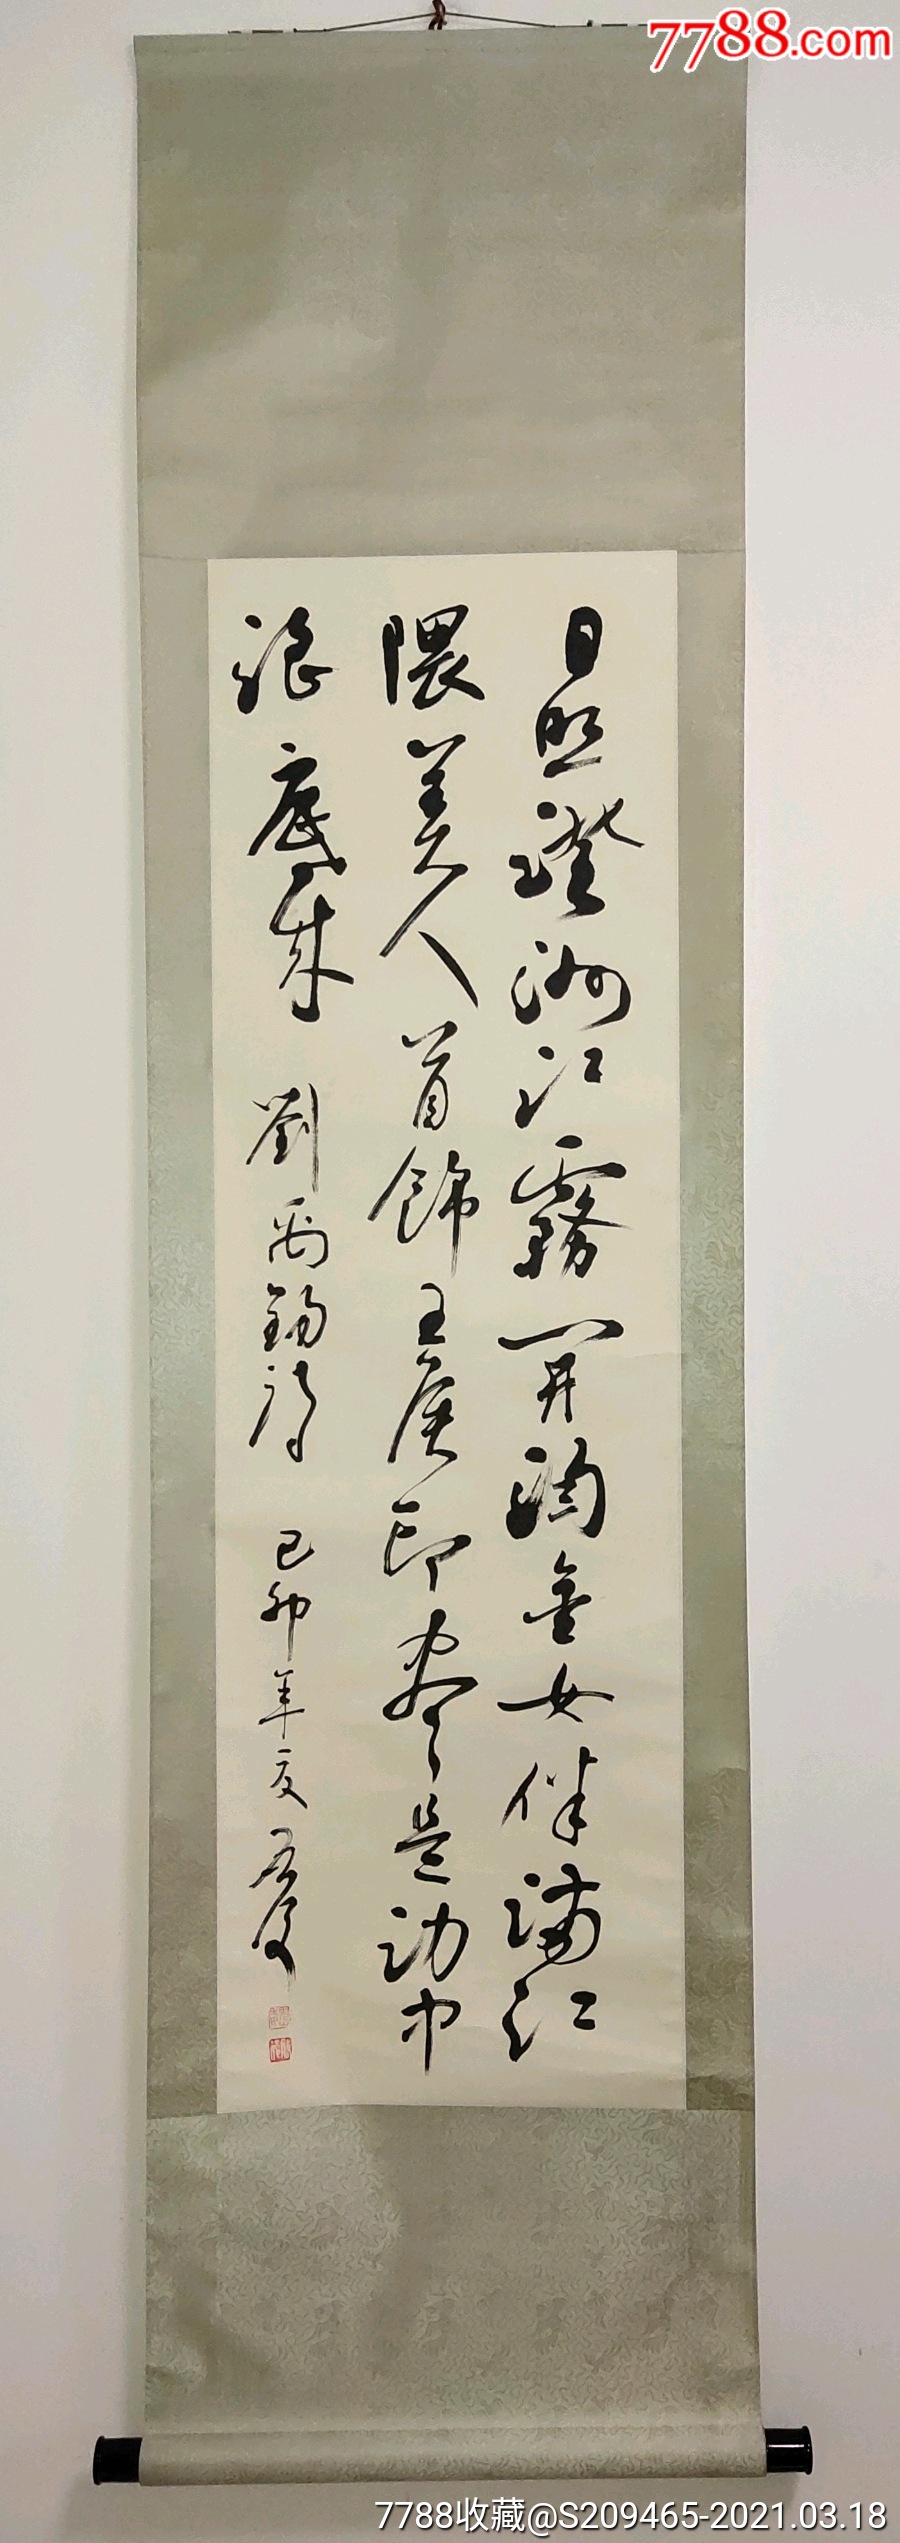 7788.com
日照澄洲江霧開淘金女伴滿江
隈美人首飾王侯印盡是沙中
浪底來 劉禹錫詩 己卯年夏
7788收藏@S209465-2021.03.18